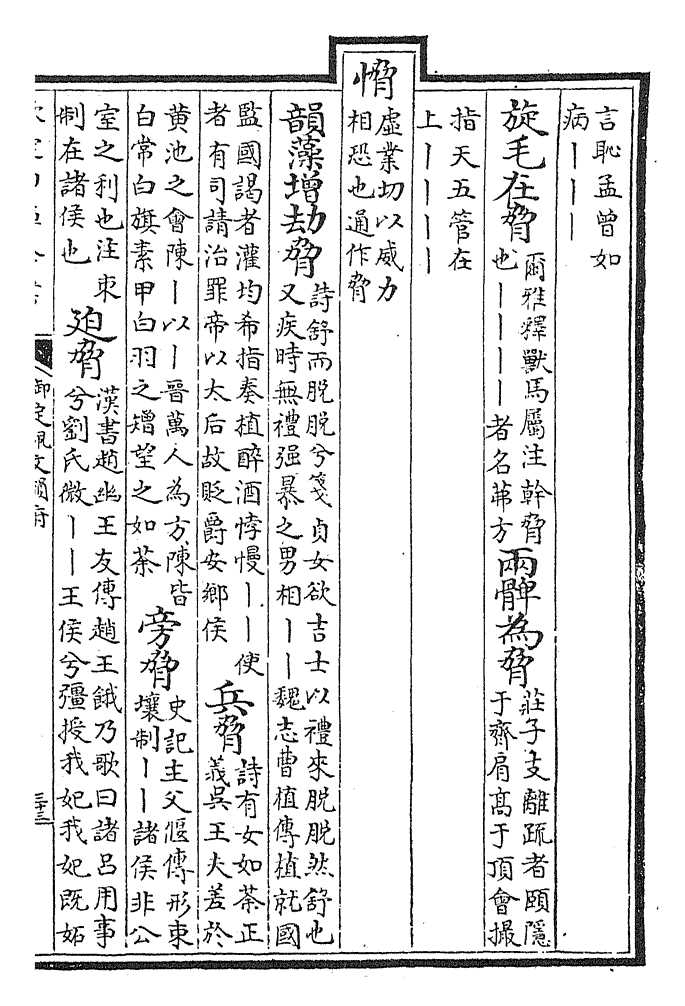 言恥孟曾如
病丨丨丨
旋毛在脅
爾雅釋獸馬屬注幹脅
也丨丨丨丨者名茀方
兩髀為脅
莊子支離疏者頤隱
于齊肩髙于頂會撮
指天五管在
上丨丨丨丨
愶
虛業切以威力
相恐也通作脅
韻藻增劫脅
詩舒而脱脱兮箋貞女欲吉士以禮來脱脱然舒也
又疾時無禮强暴之男相丨丨魏志曹植傳植就國
監國謁者灌均希指奏植醉酒悖慢丨丨使
者有司請治罪帝以太后故貶爵安鄉侯
兵脅
詩有女如荼正
義吳王夫差於
黄池之會陳丨以丨晉萬人為方陳皆
白常白旗素甲白羽之矰望之如荼
旁脅
史記主父偃傳形束
壤制丨丨諸侯非公
室之利也注束
制在諸侯也
迫脅
漢書趙幽王友傳趙王餓乃歌曰諸吕用事
兮劉氏微丨丨王侯兮彊授我妃我妃既妬
御定佩文韻府